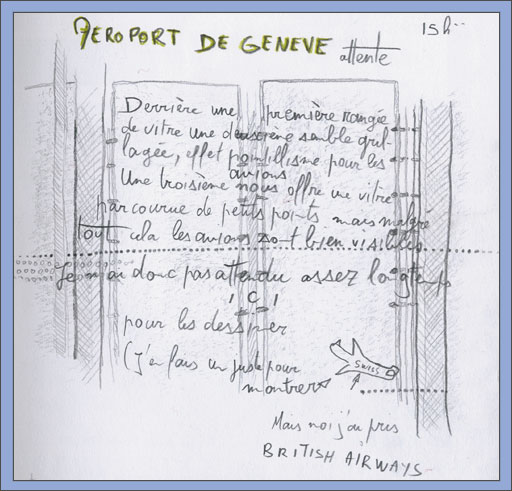 AEROPORT DE GENEVE attente 15h..
Derrière une première rangée
de vitre une deuxième semble gril-
lagée, effet pointillisme pour les
avions
Une troisième nous offre une vitre
parcourue de petits points mais malgré
tout cela les avions sont bien visibles
Je n'ai donc pas attendu assez longtemps
ICI
pour les dessiner
(j'en fais un juste pour
montrer
SWISS
Mais moi j'ai pris
BRITISH AIRWAYS